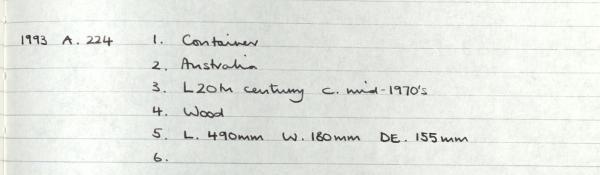 1993 A.224 1. Container
2. Australia
3. L20th century c. mid-1970's
4. Wood
5. L. 490mm W. 180mm DE. 155mm
6.